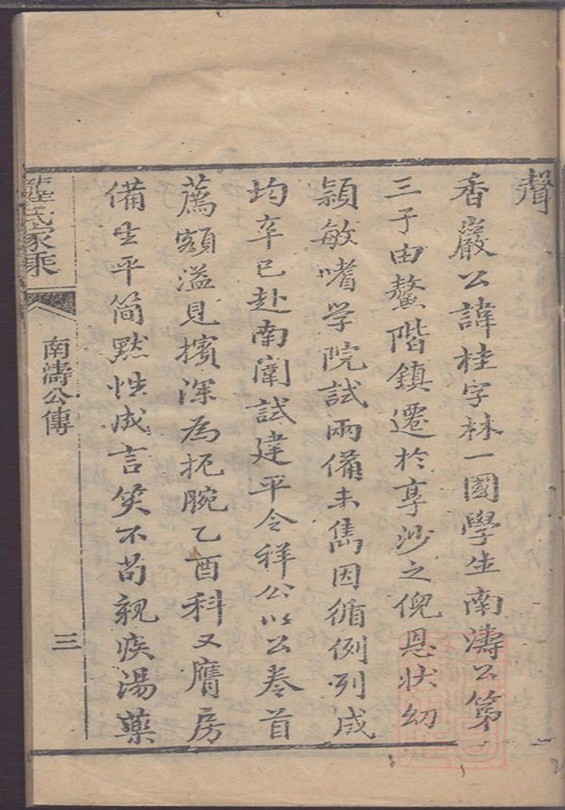 聲
香巖公諱桂字林一國學生南濤公第
三子由鰲階鎮遷於享沙之倪恩狀幼
穎敏嗜学院試兩備未雋因循例列成
均辛巳赴南闈試建平令祥公以公卷首
薦額溢見擯深為扼腕乙酉科又膺房
備生平简默性成言笑不苟親疾湯藥
氏家乘
南濤公傳
三